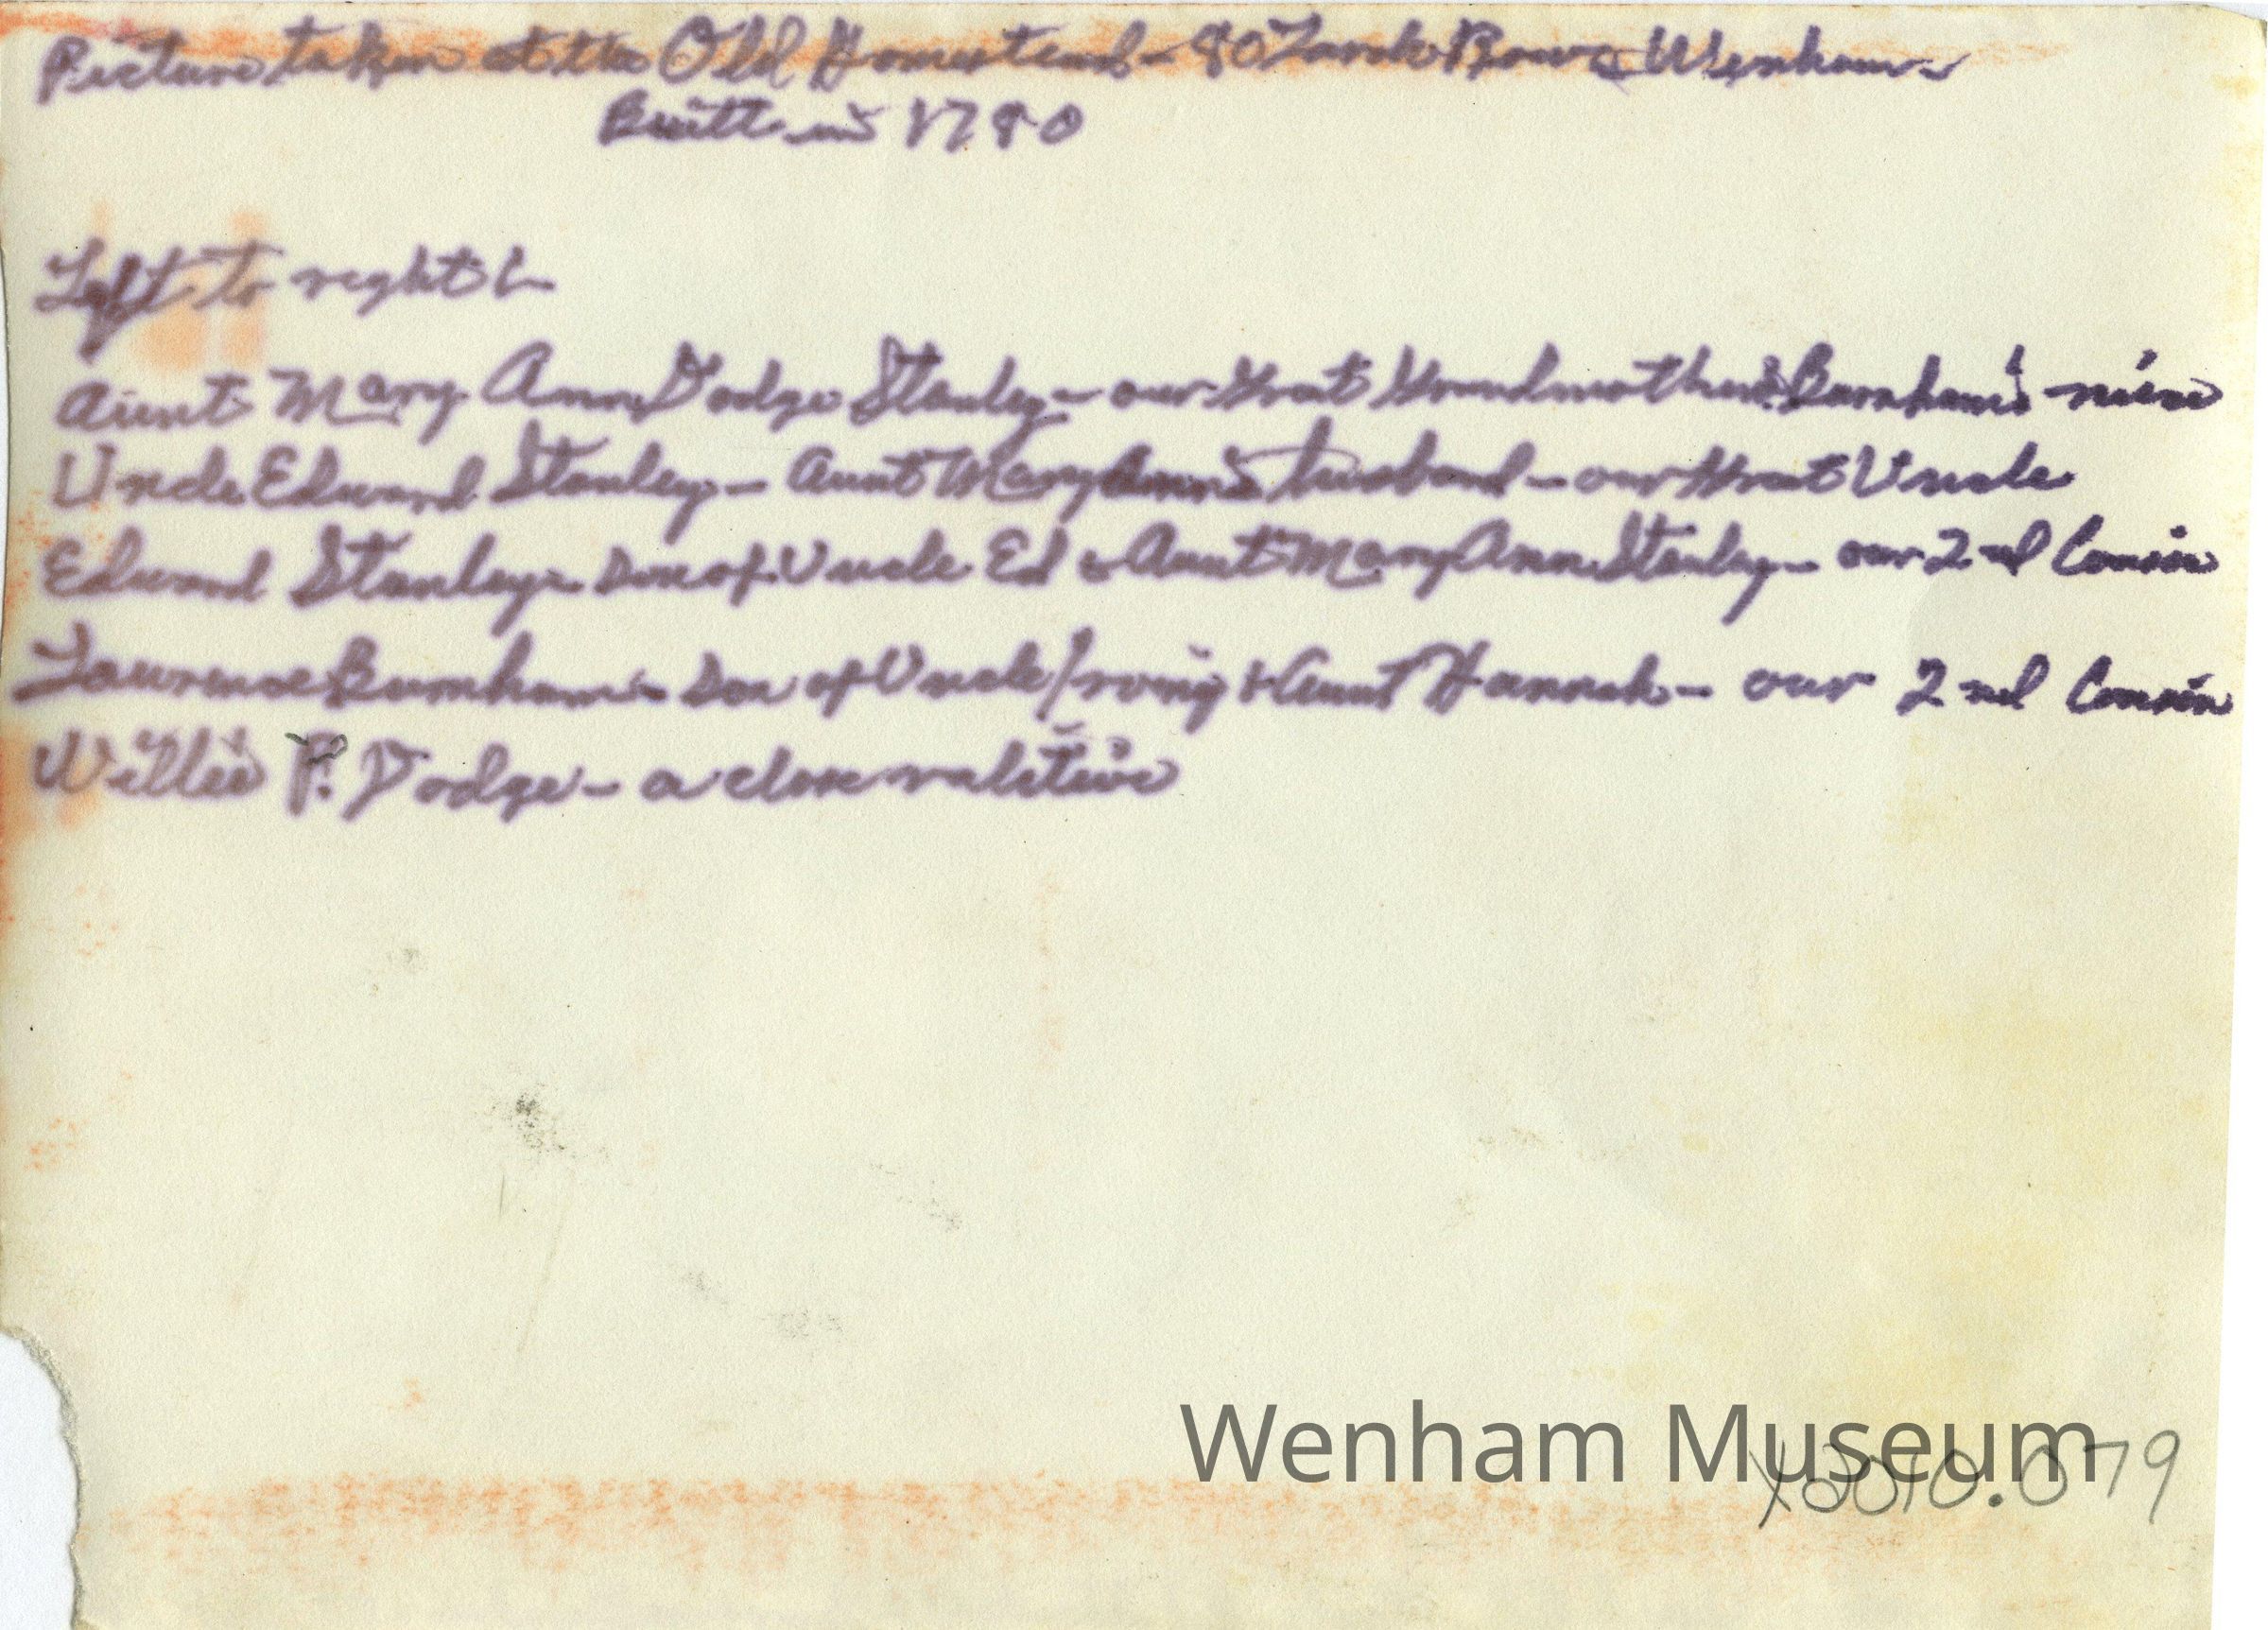 Picture taken at the Old Homestead - 90 Larch Row, Wenham -
Built in 1790
Left to right :-
Aunt Mary Ann Dodge Stanley - our Great Grandmother Burnham's niece
Uncle Edward Stanley - Aunt Mary Ann's husband - our Great Uncle
Edward Stanley - son of Uncle Ed & Aunt Mary Ann Stanley - our 2nd Cousin
Lawrence Burnham - Son of Uncle Irving & Aunt Hannah - our 2nd Cousin
Willie P. Dodge - a close relative
Wenham Museum
X2010.079